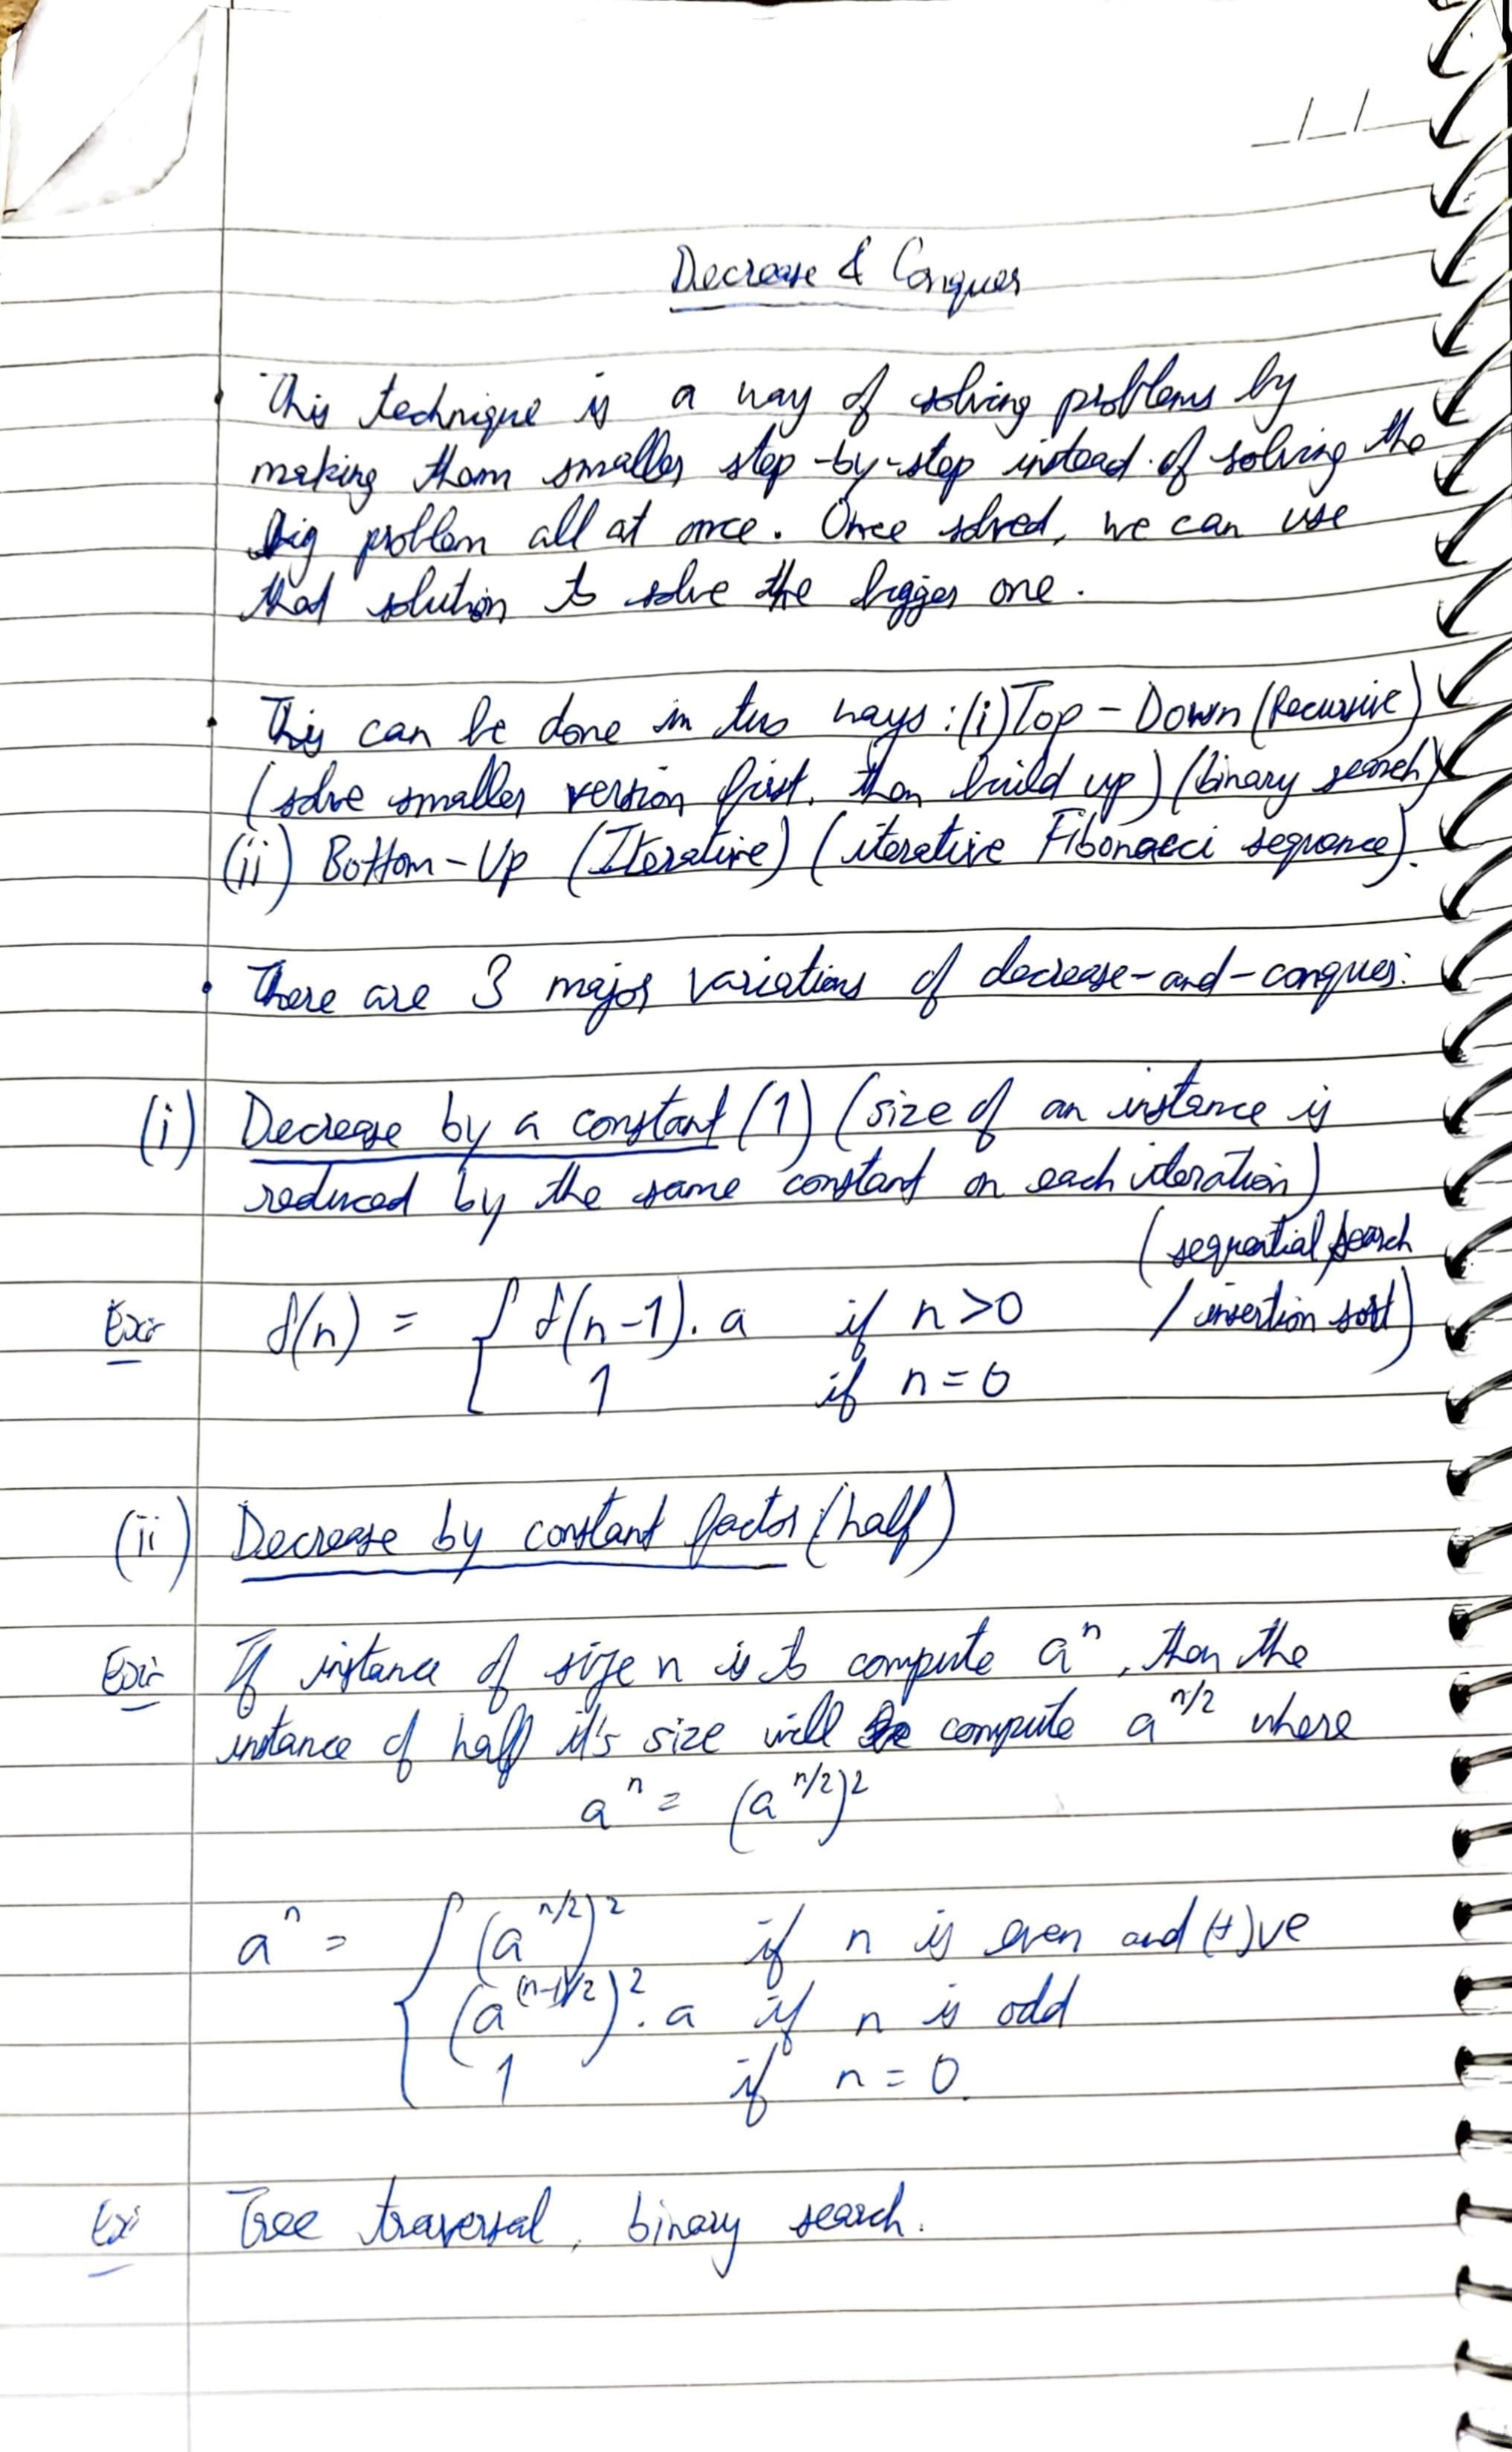 Decrease & Conquer
• This technique is a way of solving problems by
making them smaller step-by-step instead of solving the
big problem all at once. Once solved, we can use
that solution to solve the bigger one.
• This can be done in two ways: (i) Top-Down (Recursive)
(solve smaller version first, then build up) (binary search)
(ii) Bottom-Up (Iterative) (iterative Fibonacci sequence).
• There are 3 major variations of decrease-and-conquer:
(i) Decrease by a constant (1) (size of an instance is
reduced by the same constant on each iteration)
(sequential search
Ex:- f(n) = { f(n-1). a if n>0 / insertion sort)
1 if n=0
(ii) Decrease by constant factor (half)
Ex:- If instance of size n is to compute aⁿ, then the
instance of half it's size will be compute a^(n/2) where
aⁿ = (a^(n/2))²
aⁿ = { (a^(n/2))² if n is even and (+)ve
(a^((n-1)/2))². a if n is odd
1 if n = 0.
Ex: Tree traversal, binary search.